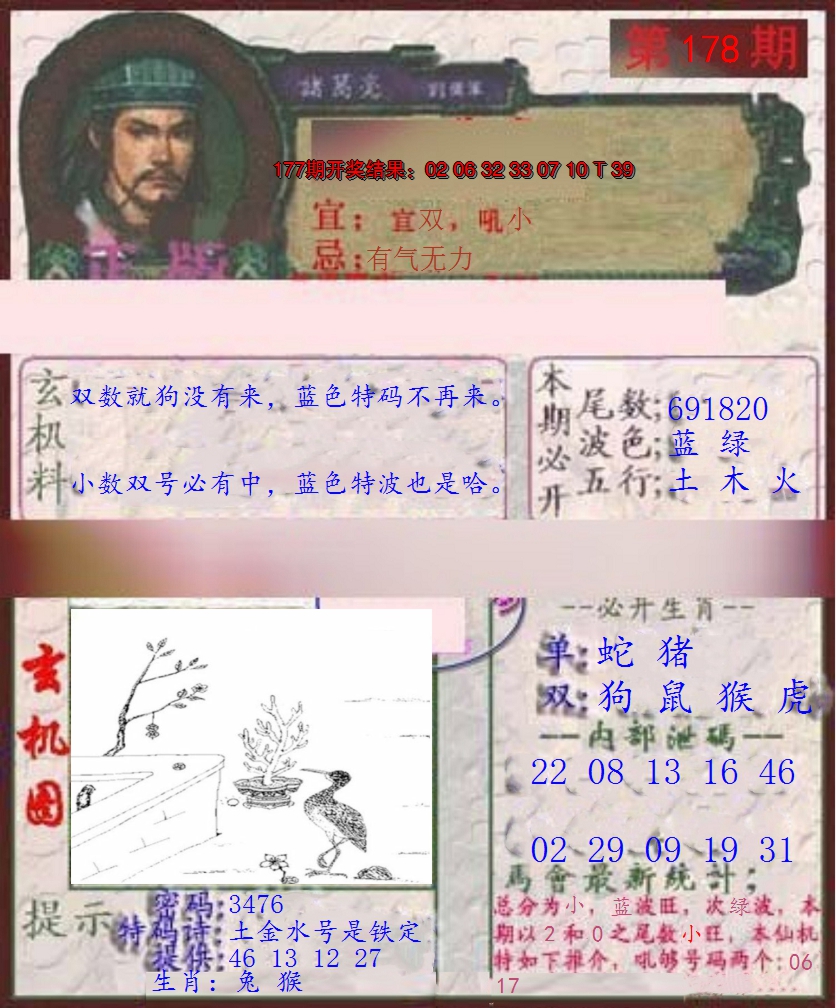 第 178 期
諸葛亮
177期开奖结果：02 06 32 33 07 10 T 39
宜；宜双，吼小
忌；有气无力
正版
玄机料
双数就狗没有来，蓝色特码不再来。
小数双号必有中，蓝色特波也是哈。
本期必开
尾数；691820
波色；蓝 绿
五行；土 木 火
玄机图
--必开生肖--
单：蛇 猪
双：狗 鼠 猴 虎
一内部泄碼一
22 08 13 16 46
02 29 09 19 31
馬會最新統計；
总分为小，蓝波旺，次绿波，本
期以2和0之尾数小旺，本仙机
特如下推介，吼够号码两个：06
17
提示
密码：3476
特码诗：土金水号是铁定
提供：46 13 12 27
生肖：兔 猴